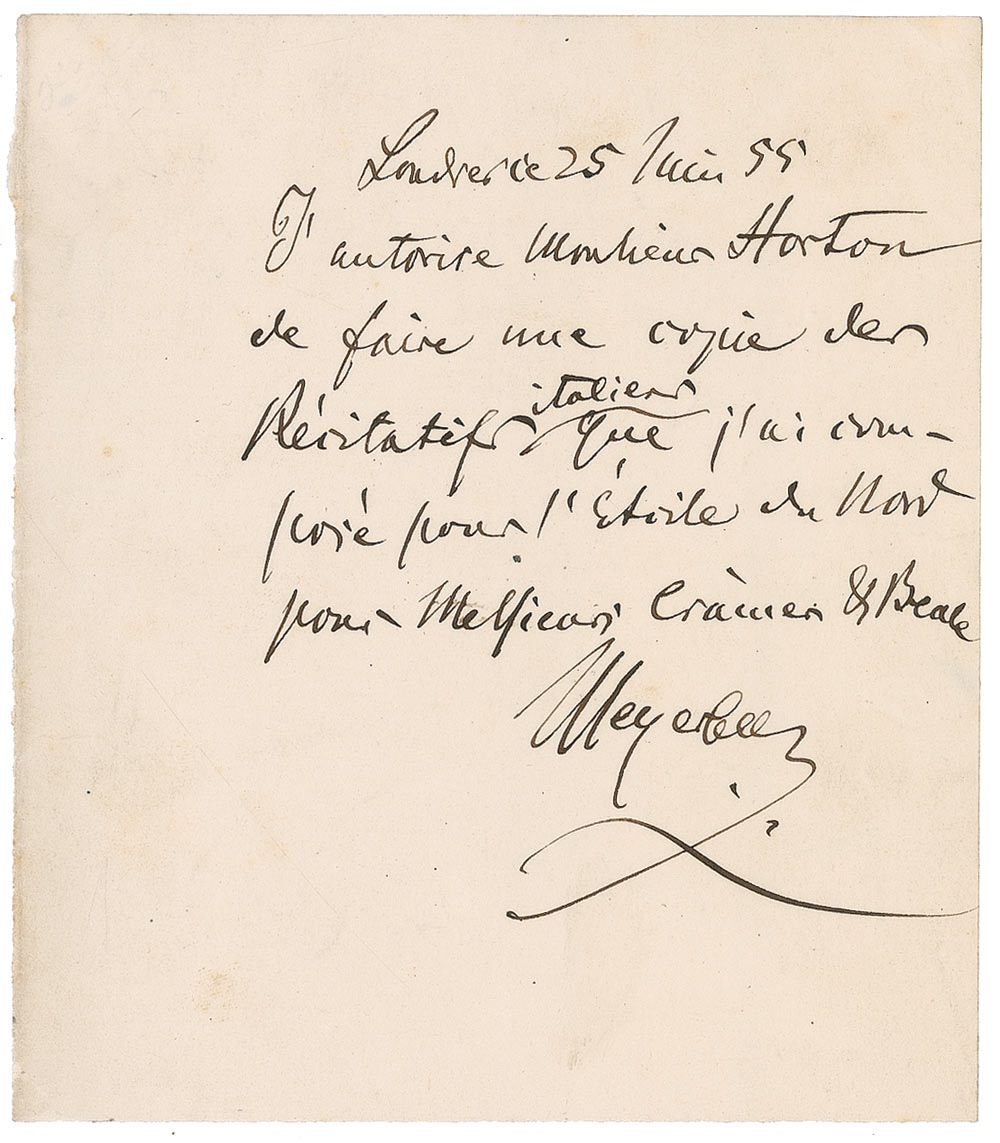 Londres ce 25 Juin 55
J'autorise Monsieur Horton
de faire une copie des
Récitatifs italiens que j'ai com-
posé pour l'Étoile du Nord
pour Messieurs Cràmer & Beale
Meyerbeer